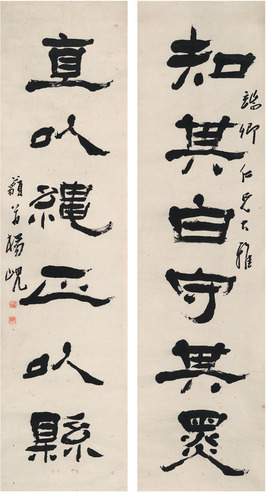 卿仁兄大雅
知其白守其黑
直以繩正以縣
藐翁楊峴